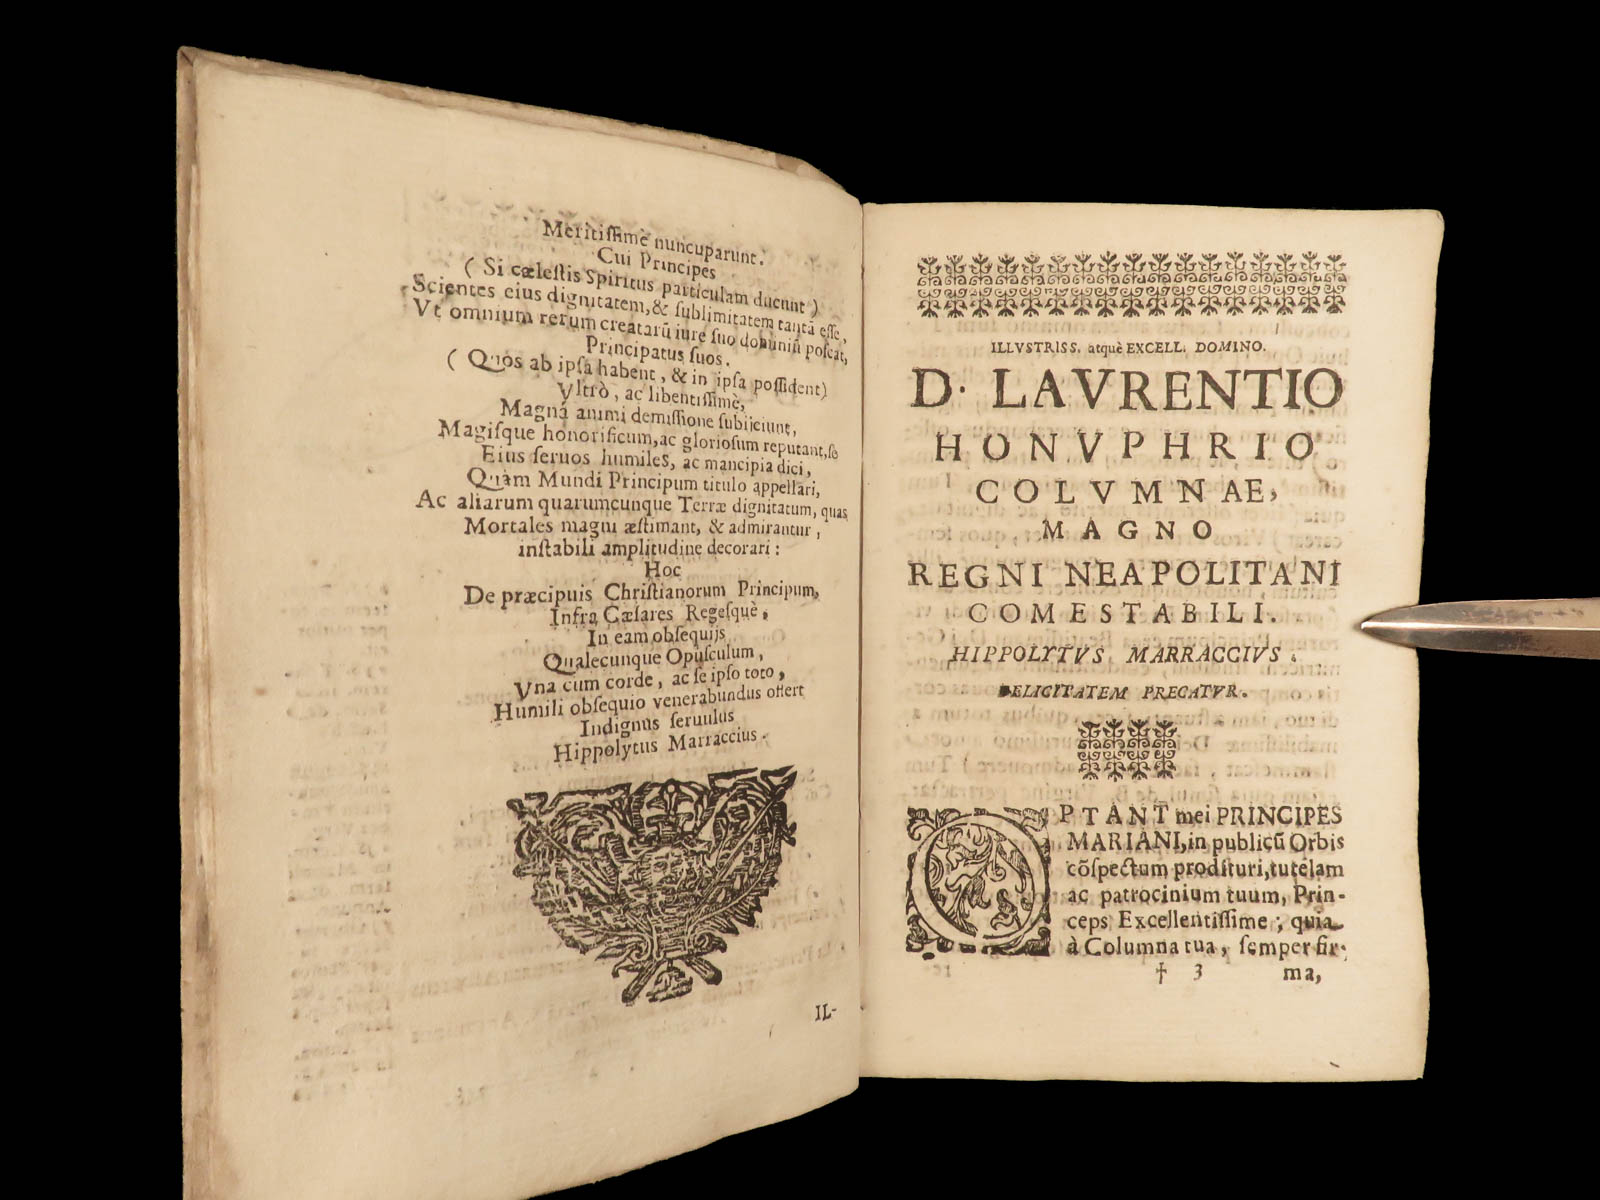 Meritissimè nuncuparunt.
Cui Principes
( Si cælestis Spiritus particulam ducunt )
Scientes eius dignitatem, & sublimitatem tantā esse,
Vt omnium rerum creatarū iure suo dominiū poscat,
Principatus suos.
( Quos ab ipsa habent, & in ipsa possident)
Vltrò, ac libentissimè,
Magna animi demissione subijciunt,
Magisque honorificum, ac gloriosum reputant, se
Eius seruos humiles, ac mancipia dici,
Quàm Mundi Principum titulo appellari,
Ac aliarum quarumcunque Terræ dignitatum, quas
Mortales magni æstimant, & admirantur,
instabili amplitudine decorari:
Hoc
De præcipuis Christianorum Principum,
Infra Cæsares Regesquè,
In eam obsequijs
Qualecunque Opusculum,
Vna cum corde, ac se ipso toto,
Humili obsequio venerabundus offert
Indignus seruulus
Hippolytus Marraccius.
IL-
ILLVSTRISS. atquè EXCELL. DOMINO.
D. LAVRENTIO
HONVPHRIO
COLVMNAE,
MAGNO
REGNI NEAPOLITANI
COMESTABILI.
HIPPOLYTVS MARRACCIVS.
FELICITATEM PRECATVR.
OPTANT mei PRINCIPES
MARIANI, in publicū Orbis
cōspectum prodituri, tutelam
ac patrocinium tuum, Prin-
ceps Excellentissime; quia
à Columna tua, semper fir-
† 3 ma,